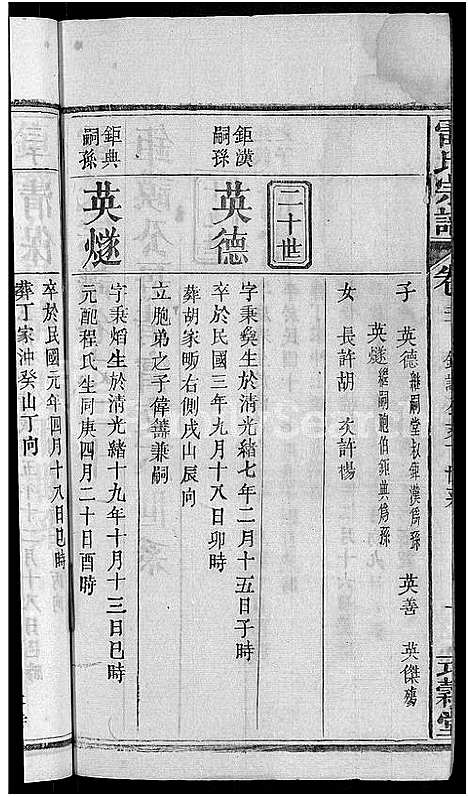 雷氏宗譜
卷
子 英德繼嗣堂叔鉅漢為孫 英善 英傑殤
英燧繼嗣胞伯鉅典為孫
女 長許胡 次許楊
二十世
鉅漢嗣孫
英德
字秉奐生於清光緒七年二月十五日子時
卒於民國三年九月十八日卯時
葬胡家畈右側戌山辰向
立胞弟之子偉善兼嗣
鉅典嗣孫
英燧
字秉熖生於清光緒十九年十月十三日巳時
元配程氏生同庚四月二十日酉時
卒於民國元年四月十八日巳時
葬丁家沖癸山丁向